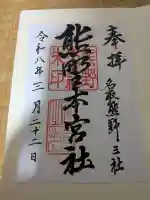 奉拝
名取熊野三社
熊野本宮社
令和八年三月二十二日